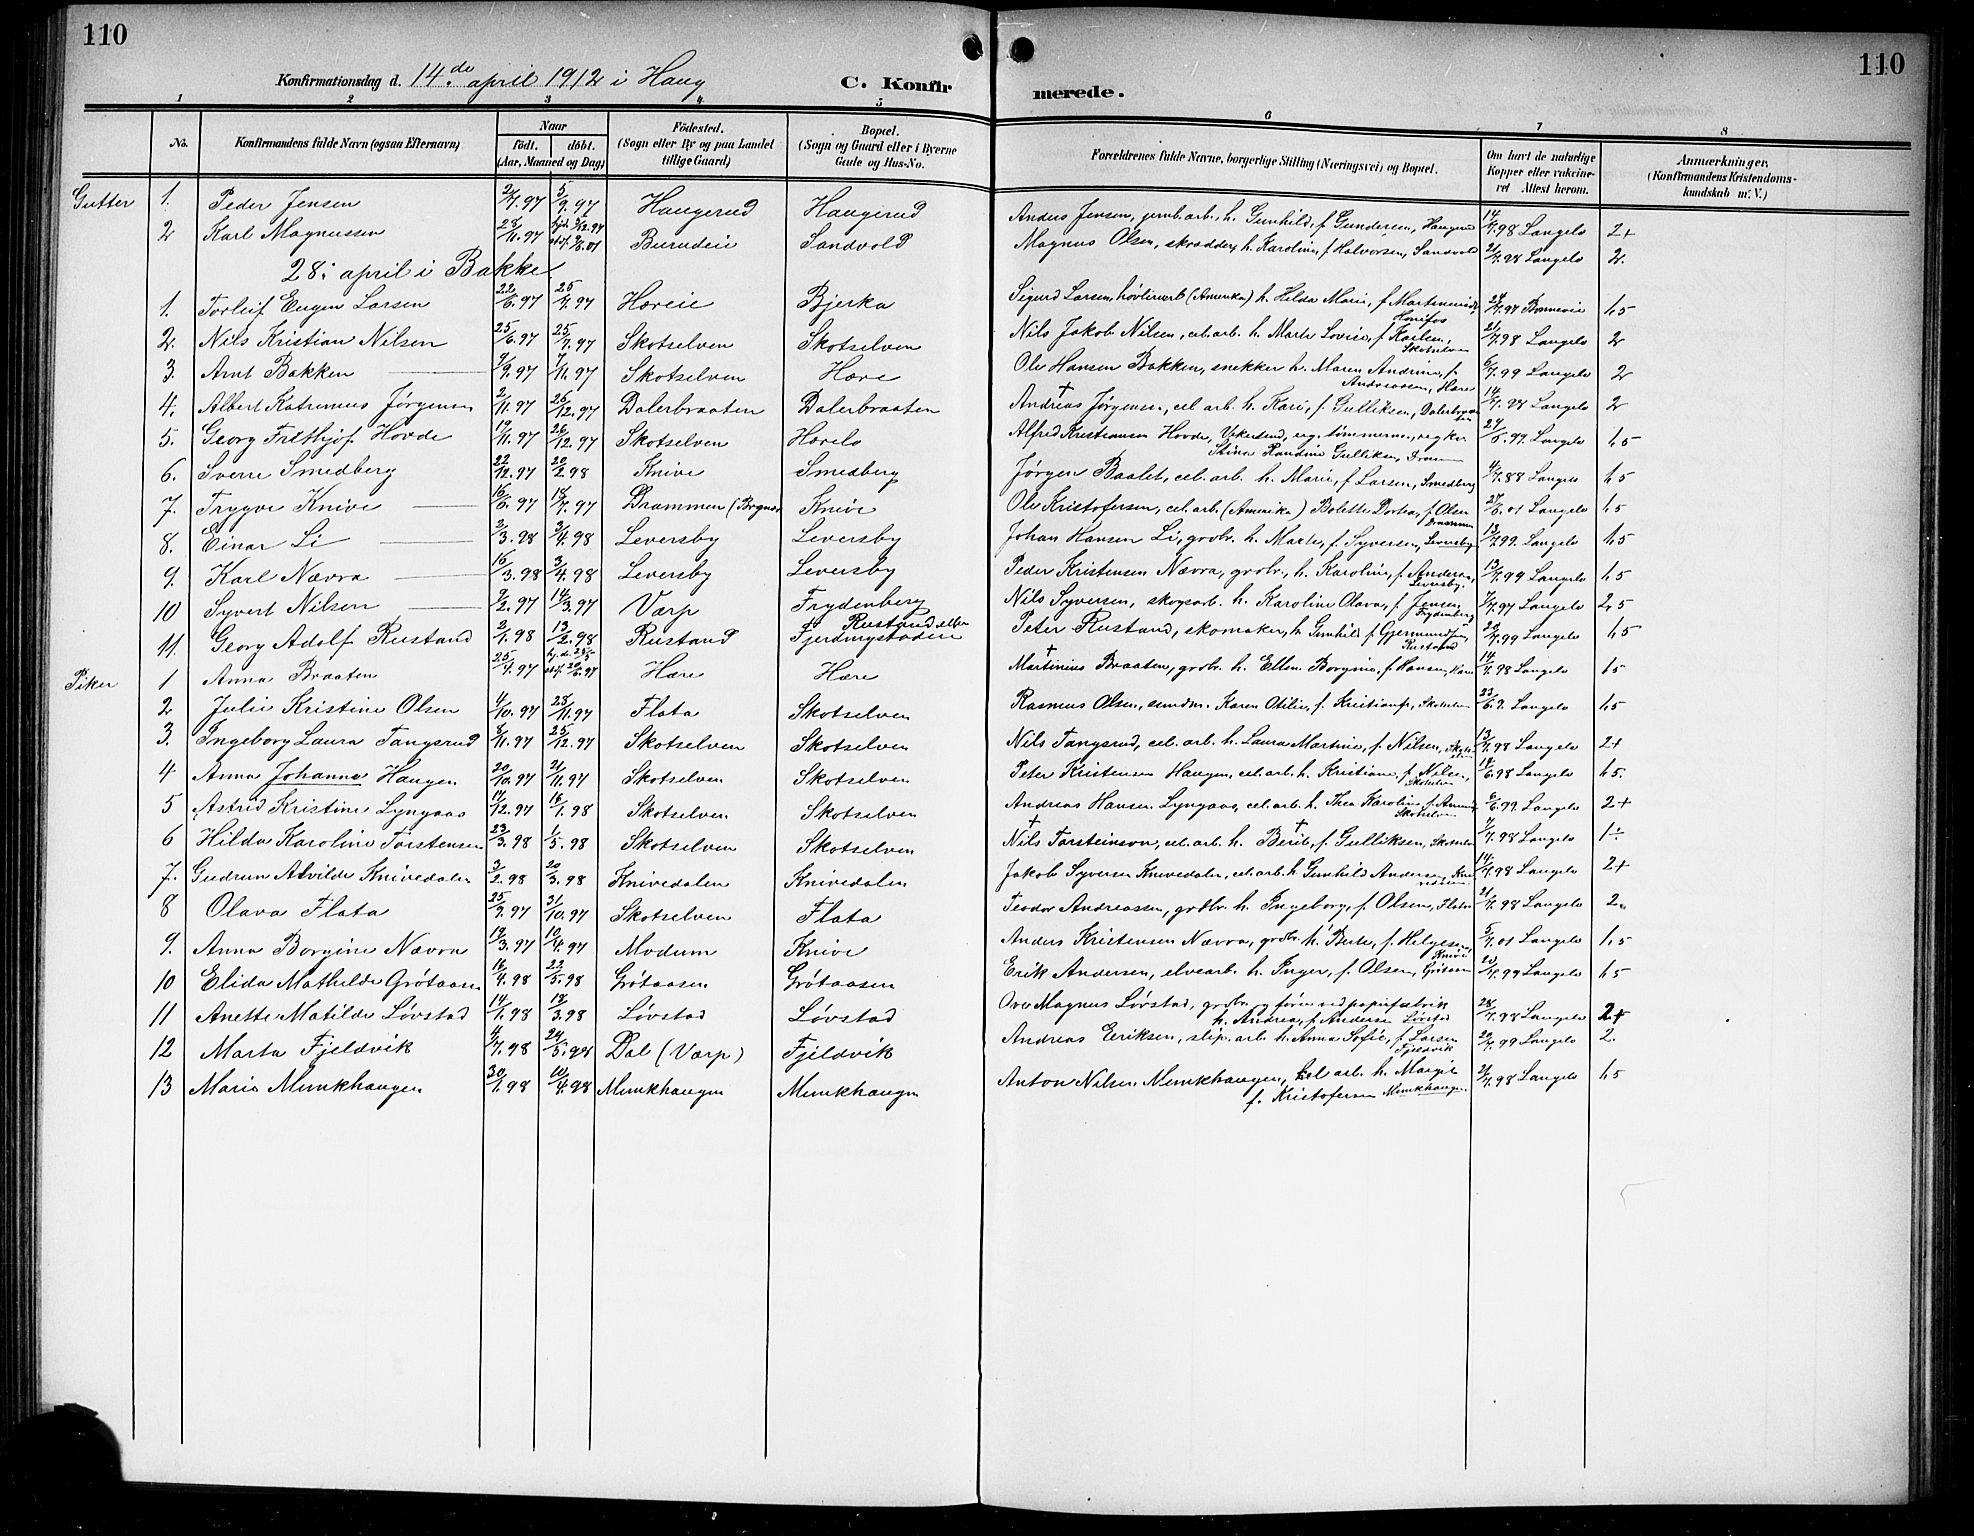 110
110
Konfirmationsdag d. 14.de april 1912 i Haug
C. Konfirmerede.
1 2 3 4 5 6 7 8
No.
Konfirmandens fulde Navn (ogsaa Efternavn)
Naar
födt. döbt.
(Aar, Maaned og Dag)
Födested.
(Sogn eller By og paa Landet
tillige Gaard)
Bopæl.
(Sogn og Gaard eller i Byerne
Gade og Hus-No.
Forældrenes fulde Navne, borgerlige Stilling (Næringsvei) og Bopæl.
Om havt de naturlige
Kopper eller vakcine-
ret Attest herom.
Anmærkninger,
(Konfirmandens Kristendoms-
kundskab m. V.)
Gutter 1. Peder Jensen 2/7.97 5/9.97 Haugerud Haugerud Anders Jensen, jernb.arb., h. Gunhild, f. Gundersen, Haugerud 14/7.98 Langelo 2+
2 Karl Magnussen 28/11.97 Burudeie Sandvold Magnus Olsen, skrædder, h. Karoline, f. Halvorsen, Sandvold 21/7.98 Langelo 2.
28: april i Bakke
1. Torleif Eugen Larsen 22/6.97 25/7.97 Hæreie Bjerka Sigurd Larsen, høvleriarb (Amerika) h. Hilda Marie, f. Martinius Hønefos 1,5
2. Nils Kristian Nilsen 25/6.97 25/7.97 Skotselven Skotselven Nils Jakob Nilsen, cel.arb. h. Marte Lovise, f. Karlsen, Skotselven 21/7.98 Langelo 2
3. Arnt Bakken 9/9.97 7/11.97 Skotselven Hære Ole Hansen Bakken, snekker h. Maren Andrine, f. Andreassen, Hære 6/7.99 Langelo 2
4. Albert Katrinus Jørgensen 2/11.97 26/12.97 Dalerbraaten Dalerbraaten Andreas † Jørgensen, cel arb. h. Kari, f. Gulliksen, Dalerbraaten 14/7.98 Langelo 2
5. Georg Frithjof Hovde 19/11.97 26/12.97 Skotselven Hærelo Alfred Kristiansen Hovde, Vekerud, ug. tømmerm., og ka. Stina Randine Gulliksen, Drammen Langelo 1,5
6. Sverre Smedberg 22/12.97 20/2.98 Knive Smedberg Jørgen Baalet, cel.arb. h. Marie, f. Larsen, Smedberg Langelo 1,5
7. Trygve Knive 16/6.97 18/7.97 Drammen (Bragnæs Knive Ole Kristofersen, cel.arb. (Amerika) Bolette Dortea, f. Olsen Drammen 27/6.01 Langelo 1,5
8. Einar Li 2/3.98 3/4.98 Leversby Leversby Johan Hansen Li, grdbr. h. Marte, f. Syversen, Leversby 13/7.99. Langelo 1,5
9. Karl Nævra 16/3.98 3/4.98 Leversby Leversby Peder Kristensen Nævra, grdbr., h. Karoline, f. Andersen, Leversby. 13/7.99 Langelo 1,5
10 Syvert Nilsen 7/2.97 14/3.97 Varp Frydenberg Nils Syversen, skogsarb. h. Karoline Olava, f. Jensen, Frydenberg 7/7.97 Langelo 2,5
11. Georg Adolf Rustand 2/1.98 13/2.98 Rustand Rustand eller Fjerdingstadeie Peter Rustand, skomaker, h. Gunhild f. Gjermundsen, Rustand 20/7.99 Langelo 1,5
Piker 1 Anna Braaten 25/4.97 Hære Hære Martinius † Braaten, grdbr. h. Ellen Borgine, f. Hansen, Hære 14/7.98 Langelo 1,5
2 Julie Kristine Olsen 4/10.97 28/11.97 Flata Skotselven Rasmus Olsen, Karen Otilie, f. Kristiansen, Skotselven Langelo 1,5
3. Ingeborg Laura Tangsrud 8/11.97 25/12.97 Skotselven Skotselven Nils Tangsrud, cel. arb. h. Laura Martine, f. Nilsen, 13/7.98 Langelo 2+
4 Anna Johanna Haugen 20/10.97 21/11.97 Skotselven Skotselven Peter Kristensen Haugen, cel.arb. h. Kristiane, f. Nilsen, Skotselven 14/6.98 Langelo 1,5.
5 Astrid Kristine Lyngaas 17/12.97 16/1.98 Skotselven Skotselven Andreas Hansen Lyngaas, cel.arb. h. Thea Karoline, f. Amund. Skotselven 6/6.99 Langelo 2+
6 Hilda Karoline Torstensen 23/3.98 1/5.98 Skotselven Skotselven Nils † Torsteinson, cel.arb. h. Berit, † f. Gulliksen, Skotselven 7/7.98 Langelo 1÷
7. Gudrun Alvilde Knivedalen 3/2.98 20/3.98 Knivedalen Knivedalen Jakob Syversen Knivedalen, cel.arb. h. Gunhild Andersen, 14/7.98 Langelo 2+
8 Olava Flata 25/9.97 31/10.97 Skotselven Flata Teodor Andreassen, grdbr. h. Ingeborg, f. Olsen, Flata 21/7.98 Langelo 2.
9. Anna Borgine Nævra 12/3.97 19/4.97 Modum Knive Anders Kristensen Nævra, grdbr. h. Berte, f. Helgesen, Knive 5/7.01 Langelo 1,5
10 Elida Mathilde Grøtaasen 16/4.98 22/5.98 Grøtaasen Grøtaasen Erik Andersen, elvearb. h. Inger, f. Olsen, Grøtaasen 20/7.99 Langelo 1,5
11 Anette Matilde Løvstad 14/1.98 13/3.98 Løvstad Løvstad Ove Magnus Løvstad, grdbr. og formand ved papirfabrik h. Andrea, f. Andersen Løvstad 28/7.98 Langelo 2+
12 Marta Fjeldvik 4/4.98 24/5.98 Dal (Varp) Fjeldvik Andreas Eeriksen, slip. arb. h. Anna Sofie, f. Larsen Fjeldvik 20/7.99 Langelo 2.
13 Marie Munkhaugen 30/1.98 10/4.98 Munkhaugen Munkhaugen Anton Nilsen Munkhaugen, cel arb. h. Margit f. Kristofersen Munkhaugen 21/7.98 Langelo 1,5